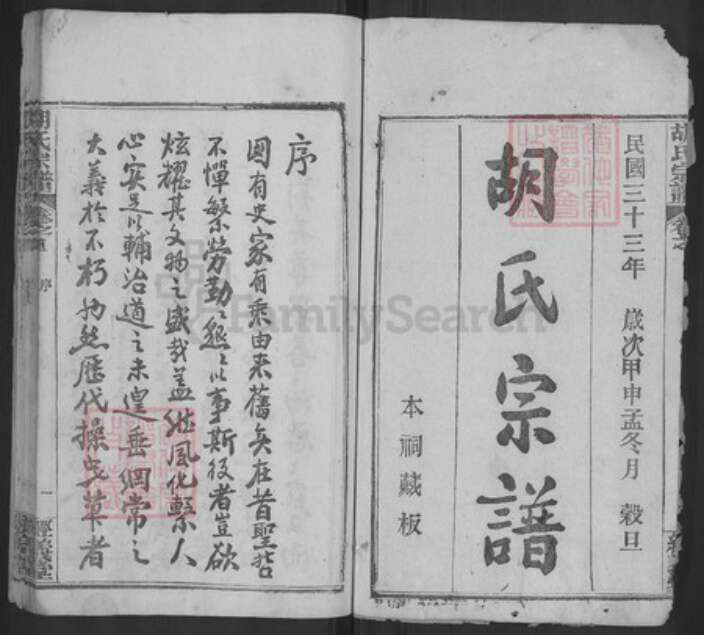 民國三十三年 歲次甲申孟冬月 穀旦
胡氏宗譜
本祠藏板
胡氏宗譜
序
國有史家有乘由來舊矣在昔聖哲
不憚繁勞勤勤懇懇以事斯役者豈欲
炫耀其文物之盛哉蓋繼風化繫人
心實足以輔治道之未遑垂綱常之
大義於不朽也然歷代操
草者
胡氏宗譜 卷之首 序 一
FamilySearch